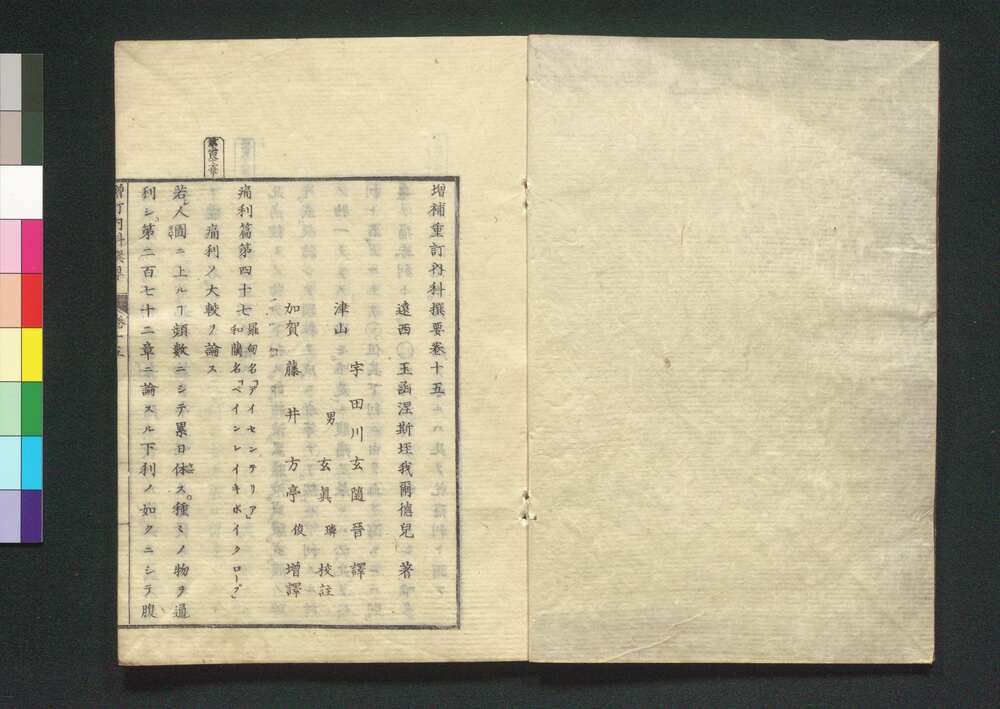 増補重訂内科撰要巻十五
遠西 玉函涅斯垤我爾德兒 著
津山 宇田川玄隨晉 譯
男 玄眞璘 挍註
加賀 藤井方亭俊 増譯
痛利篇第四十七 羅甸名「デイセンテリア」
和蘭名「ペインレイキボイクローブ」
痛利ノ大較ヲ論ス
若シ人圊ニ上ルヿ頻數ニシテ累日休ス種〻ノ物ヲ通
利シ第二百七十二章ニ論スル下利ノ如クニシテ腹